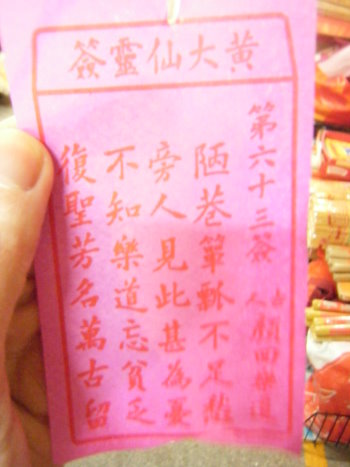 黄大仙靈簽
第六十三簽 古人 顏回樂道
陋巷簞瓢不足
旁人見此甚為憂
不知樂道忘貧乏
復聖芳名萬古留